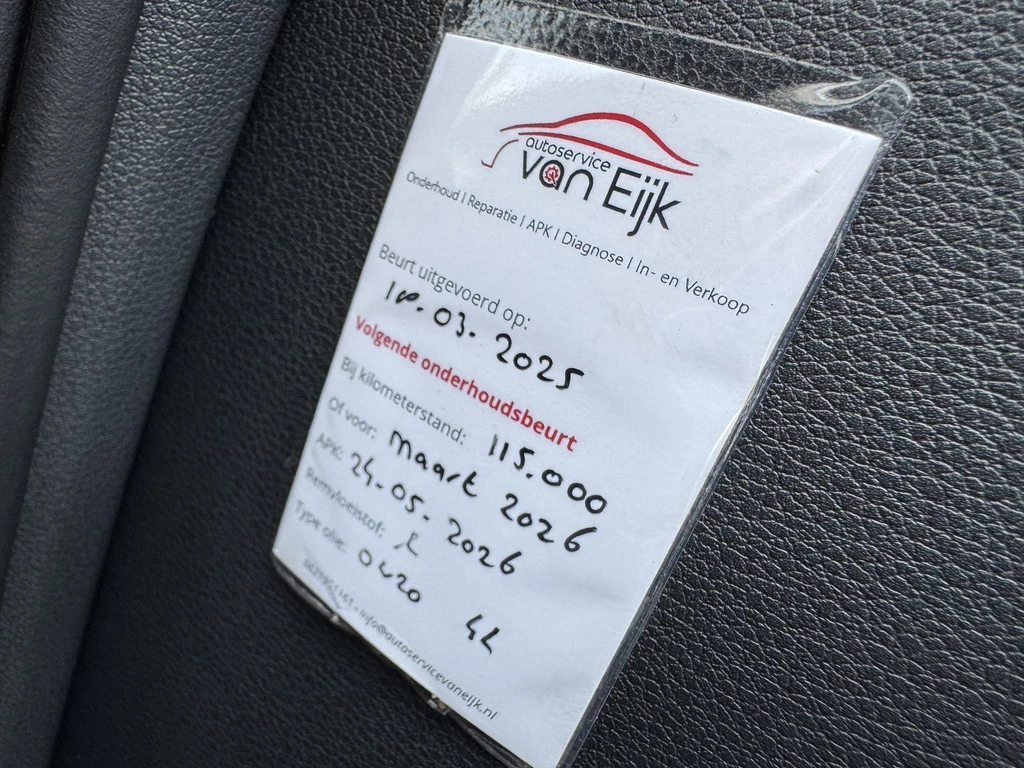 autoservice
van Eijk
Onderhoud I Reparatie I APK I Diagnose I In- en Verkoop
Beurt uitgevoerd op:
03. 2025
Volgende onderhoudsbeurt
Bij kilometerstand: 115.000
Of voor: Maart 2026
APK: 24-05-2026
Remvloeistof:
Type olie: 0W20 4L
info@autoservicevaneijk.nl